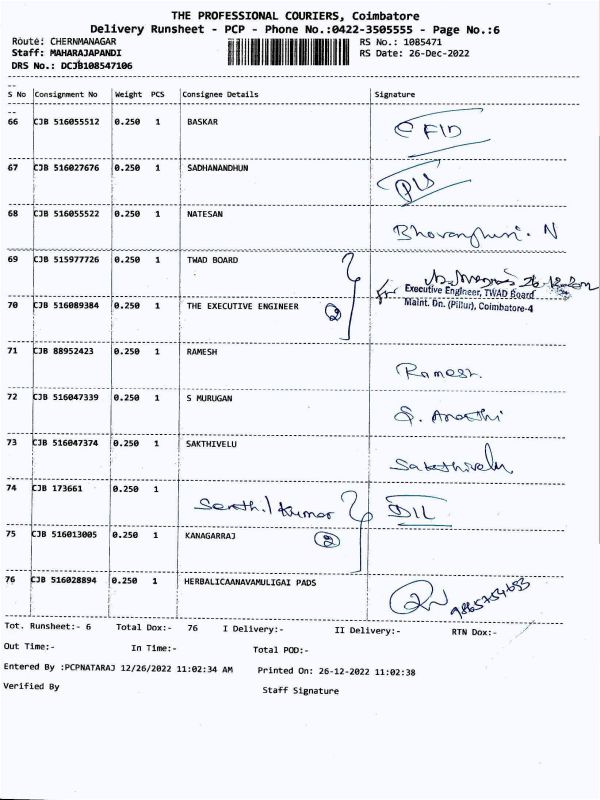 THE PROFESSIONAL COURIERS, Coimbatore
Delivery Runsheet - PCP - Phone No.:0422-3505555 - Page No.:6
Route: CHERNMANAGAR RS No.: 1085471
Staff: MAHARAJAPANDI RS Date: 26-Dec-2022
DRS No.: DCJB108547106
S No Consignment No Weight PCS Consignee Details Signature
66 CJB 516055512 0.250 1 BASKAR
67 CJB 516027676 0.250 1 SADHANANDHUN
68 CJB 516055522 0.250 1 NATESAN
69 CJB 515977726 0.250 1 TWAD BOARD
for Executive Engineer, TWAD Board
70 CJB 516089384 0.250 1 THE EXECUTIVE ENGINEER 2 Maint. Dn. (Pillur), Coimbatore-4
71 CJB 88952423 0.250 1 RAMESH Ramesh.
72 CJB 516047339 0.250 1 S MURUGAN
73 CJB 516047374 0.250 1 SAKTHIVELU Sakthivelu
74 CJB 173661 0.250 1 Senthil Kumar
75 CJB 516013005 0.250 1 KANAGARRAJ 2
76 CJB 516028894 0.250 1 HERBALICAANAVAMULIGAI PADS
Tot. Runsheet:- 6 Total Dox:- 76 I Delivery:- II Delivery:- RTN Dox:-
Out Time:- In Time:- Total POD:-
Entered By :PCPNATARAJ 12/26/2022 11:02:34 AM Printed On: 26-12-2022 11:02:38
Verified By Staff Signature